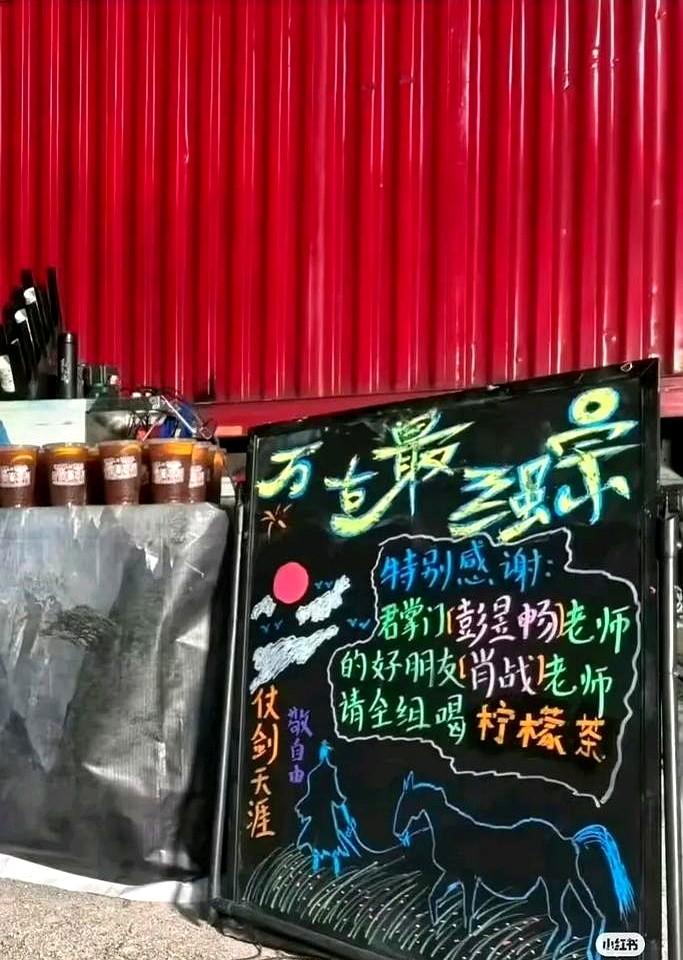 万古最强宗
特别感谢:
君掌门(彭昱畅)老师
的好朋友(肖战)老师
请全组喝柠檬茶
仗剑天涯
敬自由
小红书